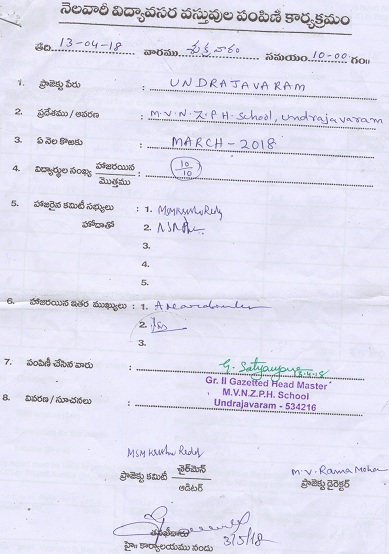 నెలవారీ విద్యావసర వస్తువుల పంపిణి కార్యక్రమం
తేది 13-04-18 వారము శుక్రవారం సమయం 10-00 గం॥
1. ప్రాజెక్టు పేరు : UNDRAJAVARAM
2. ప్రదేశము / ఆవరణ : M.V.N.Z.P.H. school, undrajavaram
3. ఏ నెల కొఱకు : MARCH - 2018
4. విద్యార్థుల సంఖ్య హాజరయిన / మొత్తము : 10/10
5. హాజరైన కమిటీ సభ్యులు : 1. MSM Krishna Reddy
హోదాతో 2.
3.
4.
5.
6. హాజరయిన ఇతర ముఖ్యులు : 1.
2.
3.
7. పంపిణీ చేసిన వారు : G. Satyanarayana
Gr. II Gazetted Head Master
M.V.N.Z.P.H. School
8. వివరణ / సూచనలు : Undrajavaram - 534216
MSM Krishna Reddy
ప్రాజెక్టు కమిటీ చైర్‌మెన్ / ఆడిటర్
M.V. Rama Mohan
ప్రాజెక్టు డైరెక్టర్
తనఖీదారు 3/5/18
హై॥ కార్యాలయము నందు